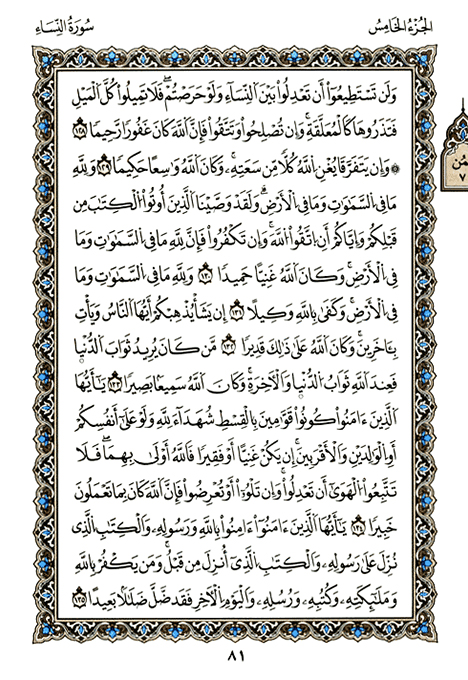 الجُزْءُ الخَامِسُ
سُورَةُ النِّسَاءِ
وَلَن تَسْتَطِيعُوٓاْ أَن تَعْدِلُواْ بَيْنَ ٱلنِّسَآءِ وَلَوْ حَرَصْتُمْۖ فَلَا تَمِيلُواْ كُلَّ ٱلْمَيْلِ
فَتَذَرُوهَا كَٱلْمُعَلَّقَةِۚ وَإِن تُصْلِحُواْ وَتَتَّقُواْ فَإِنَّ ٱللَّهَ كَانَ غَفُورًا رَّحِيمًا ١٢٨
۞ وَإِن يَتَفَرَّقَا يُغْنِ ٱللَّهُ كُلًّا مِّن سَعَتِهِۦۚ وَكَانَ ٱللَّهُ وَٰسِعًا حَكِيمًا ١٢٩ وَلِلَّهِ
مَا فِى ٱلسَّمَٰوَٰتِ وَمَا فِى ٱلْأَرْضِۗ وَلَقَدْ وَصَّيْنَا ٱلَّذِينَ أُوتُواْ ٱلْكِتَٰبَ مِن
قَبْلِكُمْ وَإِيَّاكُمْ أَنِ ٱتَّقُواْ ٱللَّهَۚ وَإِن تَكْفُرُواْ فَإِنَّ لِلَّهِ مَا فِى ٱلسَّمَٰوَٰتِ وَمَا
فِى ٱلْأَرْضِۚ وَكَانَ ٱللَّهُ غَنِيًّا حَمِيدًا ١٣٠ وَلِلَّهِ مَا فِى ٱلسَّمَٰوَٰتِ وَمَا
فِى ٱلْأَرْضِۚ وَكَفَىٰ بِٱللَّهِ وَكِيلًا ١٣١ إِن يَشَأْ يُذْهِبْكُمْ أَيُّهَا ٱلنَّاسُ وَيَأْتِ
بِـَٔاخَرِينَۚ وَكَانَ ٱللَّهُ عَلَىٰ ذَٰلِكَ قَدِيرًا ١٣٢ مَّن كَانَ يُرِيدُ ثَوَابَ ٱلدُّنْيَا
فَعِندَ ٱللَّهِ ثَوَابُ ٱلدُّنْيَا وَٱلْأَخِرَةِۚ وَكَانَ ٱللَّهُ سَمِيعًا بَصِيرًا ١٣٣ يَٰٓأَيُّهَا
ٱلَّذِينَ ءَامَنُواْ كُونُواْ قَوَّٰمِينَ بِٱلْقِسْطِ شُهَدَآءَ لِلَّهِ وَلَوْ عَلَىٰٓ أَنفُسِكُمْ
أَوِ ٱلْوَٰلِدَيْنِ وَٱلْأَقْرَبِينَۚ إِن يَكُنْ غَنِيًّا أَوْ فَقِيرًا فَٱللَّهُ أَوْلَىٰ بِهِمَاۖ فَلَا
تَتَّبِعُواْ ٱلْهَوَىٰٓ أَن تَعْدِلُواْۚ وَإِن تَلْوُۥٓاْ أَوْ تُعْرِضُواْ فَإِنَّ ٱللَّهَ كَانَ بِمَا تَعْمَلُونَ
خَبِيرًا ١٣٤ يَٰٓأَيُّهَا ٱلَّذِينَ ءَامَنُوٓاْ ءَامِنُواْ بِٱللَّهِ وَرَسُولِهِۦ وَٱلْكِتَٰبِ ٱلَّذِى
نُزِّلَ عَلَىٰ رَسُولِهِۦ وَٱلْكِتَٰبِ ٱلَّذِىٓ أُنزِلَ مِن قَبْلُۚ وَمَن يَكْفُرْ بِٱللَّهِ
وَمَلَٰٓئِكَتِهِۦ وَكُتُبِهِۦ وَرُسُلِهِۦ وَٱلْيَوْمِ ٱلْأَخِرِ فَقَد ضَّلَّ ضَلَٰلًا بَعِيدًا ١٣٥
٧
٨١